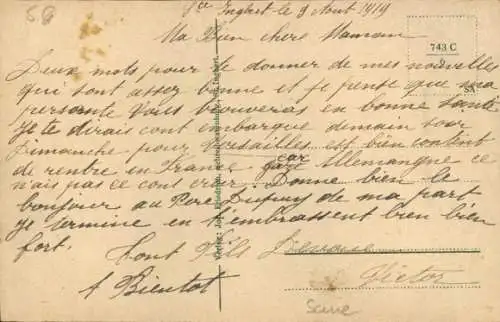 58
St Ingbert le 9 Aout 1919
Ma Bien chere Maman
743 C
Deux mots pour te donner de mes nouvelles
qui sont assez bonne et je pense que ma
presente vous trouveras en bonne santé
Je te dirais cont embarque demain soir
Dimanche pour Versailles est bien content
de rentre en France car Allemangne ce
n'ais pas ce cont crer. Donne bien le
bonjour au Pere Dupuy de ma part
Je termine en t'embrassent bien bien
fort.
Tont Fils Devoue
A Bientot
Victor
Seine